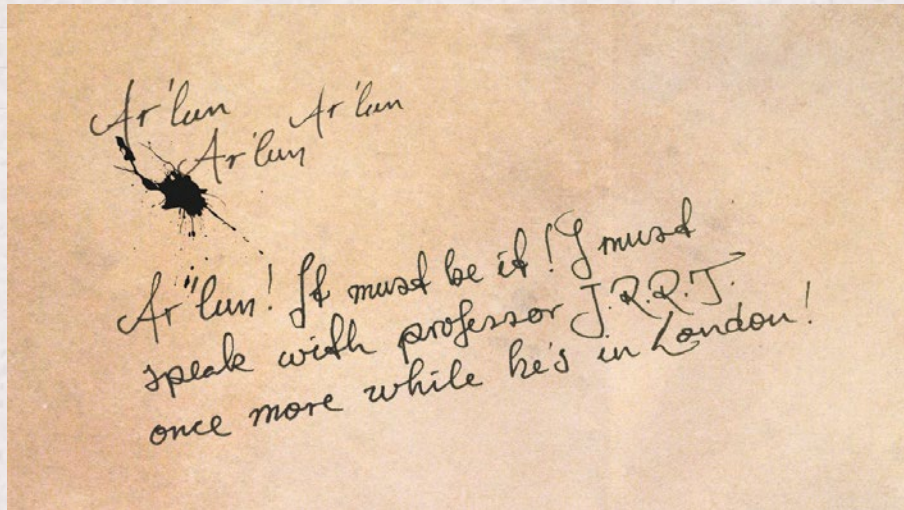 Ar'lun
Ar'lun
Ar'lun
Ar'lun! It must be it! I must
speak with professor J.R.R.T.
once more while he's in London!